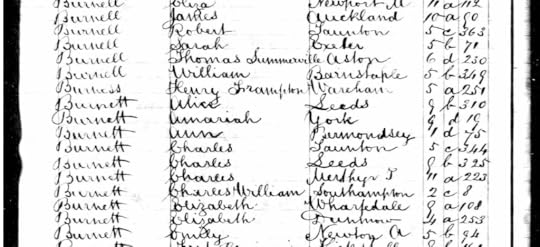 Burnell Eliza Newport M. 11 a 112
Burnell James Auckland 10 a 60
Burnell Robert Taunton 5 c 363
Burnell Sarah Exeter 5 b 71
Burnell Thomas Summerville Aston 6 d 230
Burnell William Barnstaple 5 b 349
Burness Henry Frampton Wareham 5 a 251
Burnett Alice Leeds 9 b 310
Burnett Amariah York 9 d 19
Burnett Ann Bermondsey 1 d 75
Burnett Charles Taunton 5 c 344
Burnett Charles Leeds 9 b 325
Burnett Charles Merthyr T. 11 a 223
Burnett Charles William Southampton 2 c 8
Burnett Elizabeth Wharfedale 9 a 108
Burnett Elizabeth Dunmow 4 a 253
Burnett Emily Newton A. 5 b 94
Burnett